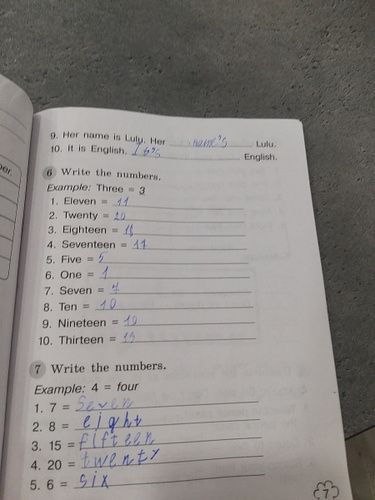 9. Her name is Lulu. Her name's Lulu.
10. It is English. It's English.
6 Write the numbers.
Example: Three = 3
1. Eleven = 11
2. Twenty = 20
3. Eighteen = 18
4. Seventeen = 17
5. Five = 5
6. One = 1
7. Seven = 7
8. Ten = 10
9. Nineteen = 19
10. Thirteen = 13
7 Write the numbers.
Example: 4 = four
1. 7 = Seven
2. 8 = eight
3. 15 = fifteen
4. 20 = twenty
5. 6 = six
7